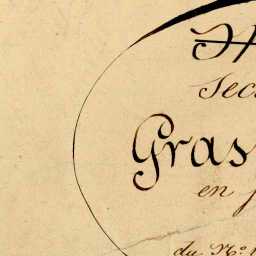 Sec
Gras
en
du N.º